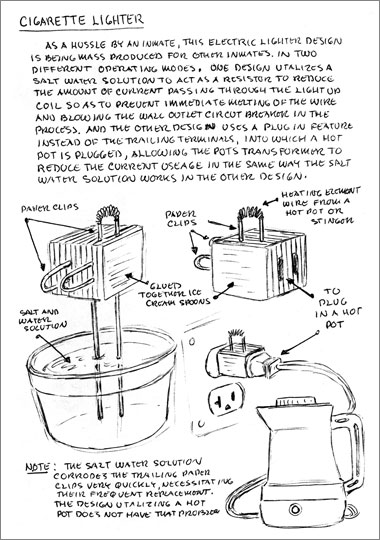 CIGARETTE LIGHTER
AS A HUSSLE BY AN INMATE, THIS ELECTRIC LIGHTER DESIGN
IS BEING MASS PRODUCED FOR OTHER INMATES. IN TWO
DIFFERENT OPERATING MODES, ONE DESIGN UTALIZES A
SALT WATER SOLUTION TO ACT AS A RESISTOR TO REDUCE
THE AMOUNT OF CURRENT PASSING THROUGH THE LIGHT UP
COIL SO AS TO PREVENT IMMEDIATE MELTING OF THE WIRE
AND BLOWING THE WALL OUTLET CIRCUT BREAKER IN THE
PROCESS. AND THE OTHER DESIGN USES A PLUG IN FEATURE
INSTEAD OF THE TRAILING TERMINALS, INTO WHICH A HOT
POT IS PLUGGED, ALLOWING THE POTS TRANSFORMER TO
REDUCE THE CURRENT USEAGE IN THE SAME WAY THE SALT
WATER SOLUTION WORKS IN THE OTHER DESIGN.
PAPER CLIPS
PAPER
CLIPS
HEATING ELEMENT
WIRE FROM A
HOT POT OR
STINGER
GLUED
TOGETHER ICE
CREAM SPOONS
SALT AND
WATER
SOLUTION
TO
PLUG
IN A HOT
POT
NOTE: THE SALT WATER SOLUTION
CORRODES THE TRAILING PAPER
CLIPS VERY QUICKLY, NECESSITATING
THEIR FREQUENT REPLACEMENT.
THE DESIGN UTALIZING A HOT
POT DOES NOT HAVE THAT PROBLEM